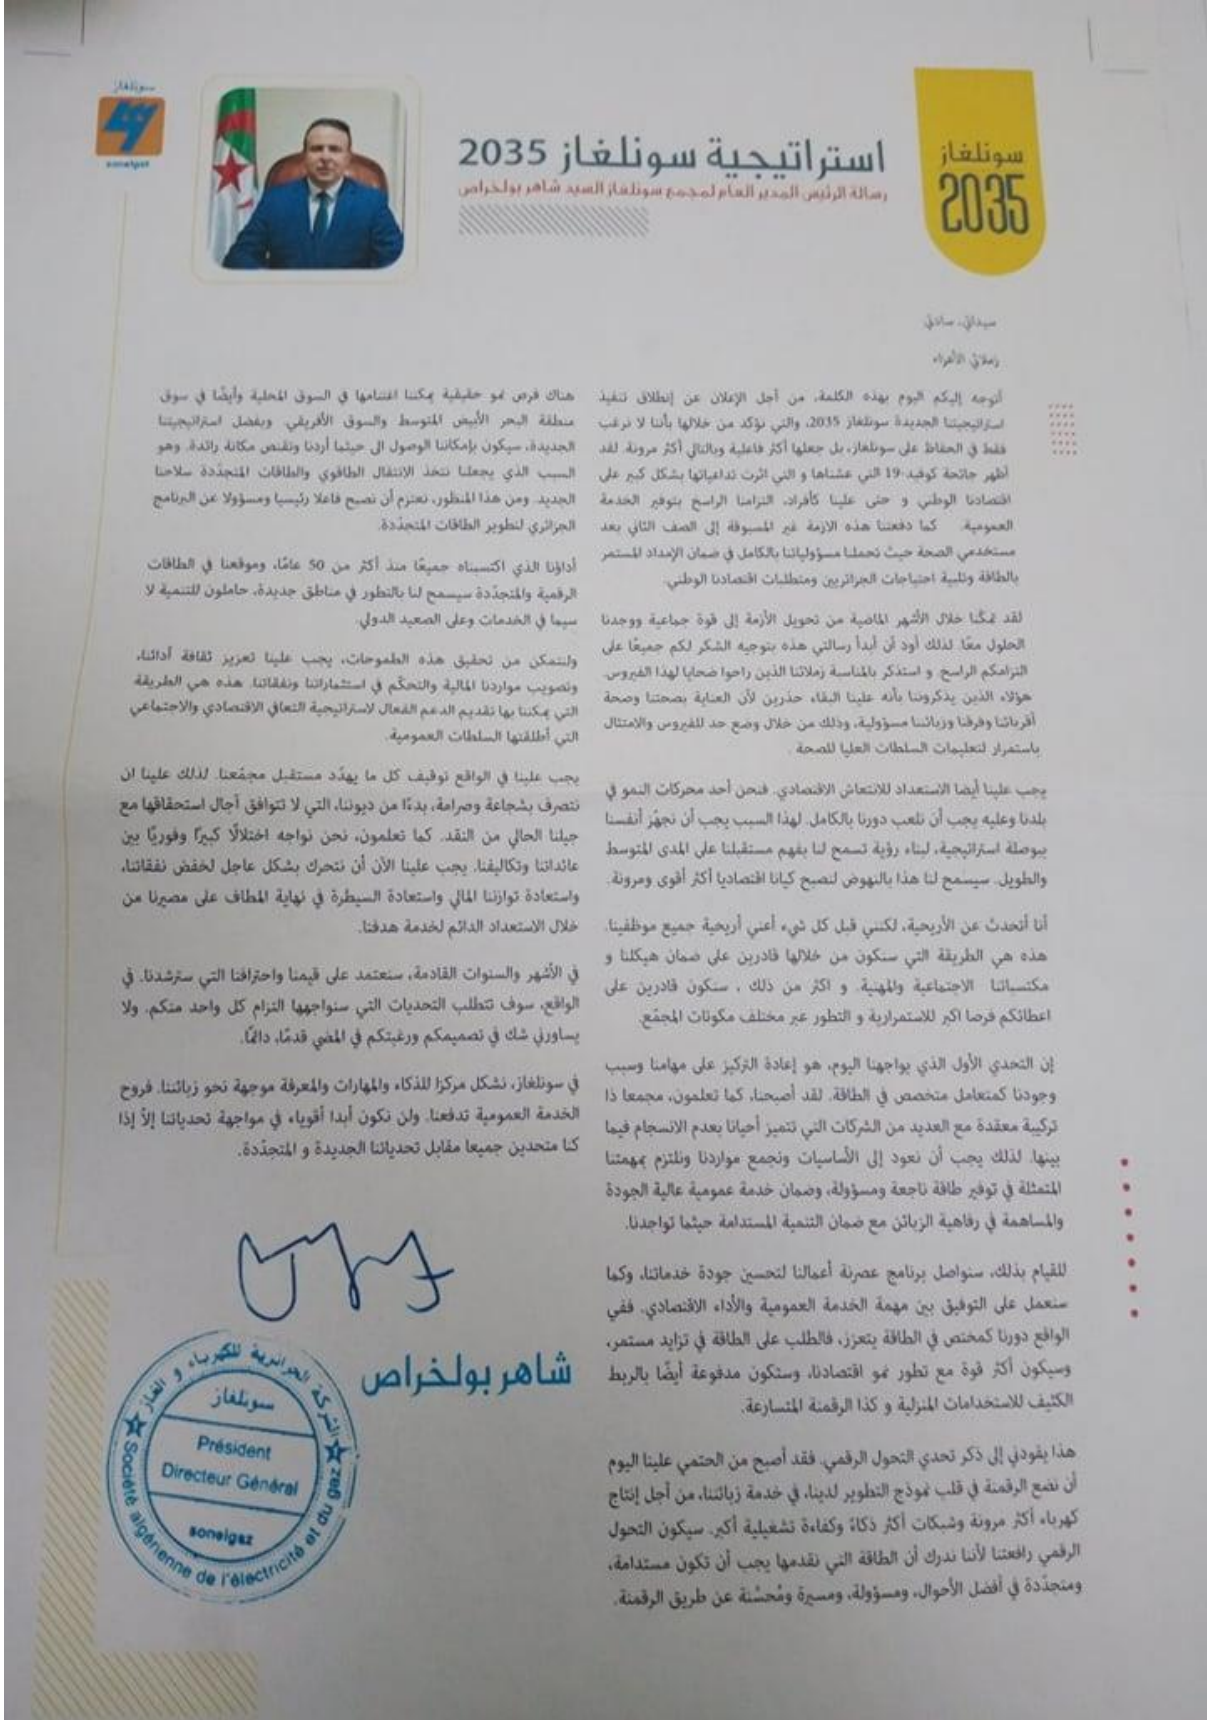 سونلغاز
sonelgaz
استراتيجية سونلغاز 2035
رسالة الرئيس المدير العام لمجمع سونلغاز السيد شاهر بولخراص
سونلغاز
2035
سيداتي، سادتي
زملائي الأعزاء
أتوجه إليكم اليوم بهذه الكلمة، من أجل الإعلان عن إنطلاق تنفيذ
استراتيجيتنا الجديدة سونلغاز 2035، والتي نؤكد من خلالها بأننا لا نرغب
فقط في الحفاظ على سونلغاز، بل جعلها أكثر فاعلية وبالتالي أكثر مرونة. لقد
أظهر جائحة كوفيد-19 التي عشناها و التي اثرت تداعياتها بشكل كبير على
اقتصادنا الوطني و حتى علينا كأفراد، التزامنا الراسخ بتوفير الخدمة
العمومية. كما دفعتنا هذه الازمة غير المسبوقة إلى الصف الثاني بعد
مستخدمي الصحة حيث تحملنا مسؤولياتنا بالكامل في ضمان الإمداد المستمر
بالطاقة وتلبية احتياجات الجزائريين ومتطلبات اقتصادنا الوطني.
لقد تمكّنا خلال الأشهر الماضية من تحويل الأزمة إلى قوة جماعية ووجدنا
الحلول معًا. لذلك أود أن أبدأ رسالتي هذه بتوجيه الشكر لكم جميعًا على
التزامكم الراسخ. و استذكر بالمناسبة زملائنا الذين راحوا ضحايا لهذا الفيروس.
هؤلاء الذين يذكروننا بأنه علينا البقاء حذرين لأن العناية بصحتنا وصحة
أقربائنا وفرقنا وزبائننا مسؤولية، وذلك من خلال وضع حد للفيروس والامتثال
باستمرار لتعليمات السلطات العليا للصحة .
يجب علينا أيضا الاستعداد للانتعاش الاقتصادي. فنحن أحد محركات النمو في
بلدنا وعليه يجب أن نلعب دورنا بالكامل. لهذا السبب يجب أن نجهّز أنفسنا
ببوصلة استراتيجية، لبناء رؤية تسمح لنا بفهم مستقبلنا على المدى المتوسط
والطويل. سيسمح لنا هذا بالنهوض لنصبح كيانا اقتصاديا أكثر أقوى ومرونة.
أنا أتحدث عن الأريحية، لكنني قبل كل شيء أعني أريحية جميع موظفينا.
هذه هي الطريقة التي سنكون من خلالها قادرين على ضمان هيكلنا و
مكتسباتنا الاجتماعية والمهنية. و اكثر من ذلك ، سنكون قادرين على
اعطائكم فرصا اكبر للاستمرارية و التطور عبر مختلف مكونات المجمّع.
إن التحدي الأول الذي يواجهنا اليوم، هو إعادة التركيز على مهامنا وسبب
وجودنا كمتعامل متخصص في الطاقة. لقد أصبحنا، كما تعلمون، مجمعا ذا
تركيبة معقدة مع العديد من الشركات التي تتميز أحيانا بعدم الانسجام فيما
بينها. لذلك يجب أن نعود إلى الأساسيات ونجمع مواردنا ونلتزم بمهمتنا
المتمثلة في توفير طاقة ناجعة ومسؤولة، وضمان خدمة عمومية عالية الجودة
والمساهمة في رفاهية الزبائن مع ضمان التنمية المستدامة حيثما تواجدنا.
للقيام بذلك، سنواصل برنامج عصرنة أعمالنا لتحسين جودة خدماتنا، وكما
سنعمل على التوفيق بين مهمة الخدمة العمومية والأداء الاقتصادي. ففي
الواقع دورنا كمختص في الطاقة يتعزز، فالطلب على الطاقة في تزايد مستمر،
وسيكون أكثر قوة مع تطور نمو اقتصادنا، وستكون مدفوعة أيضًا بالربط
الكثيف للاستخدامات المنزلية و كذا الرقمنة المتسارعة.
هذا يقودني إلى ذكر تحدي التحول الرقمي. فقد أصبح من الحتمي علينا اليوم
أن نضع الرقمنة في قلب نموذج التطوير لدينا، في خدمة زبائننا، من أجل إنتاج
كهرباء أكثر مرونة وشبكات أكثر ذكاءً وكفاءة تشغيلية أكبر. سيكون التحول
الرقمي رافعتنا لأننا ندرك أن الطاقة التي نقدمها يجب أن تكون مستدامة،
ومتجدّدة في أفضل الأحوال، ومسؤولة، ومسيرة ومُحسَّنة عن طريق الرقمنة.
هناك فرص نمو حقيقية يمكننا اغتنامها في السوق المحلية وأيضًا في سوق
منطقة البحر الأبيض المتوسط والسوق الأفريقي. وبفضل استراتيجيتنا
الجديدة، سيكون بإمكاننا الوصول الى حيثما أردنا ونقتص مكانة رائدة. وهو
السبب الذي يجعلنا نتخذ الانتقال الطاقوي والطاقات المتجدّدة سلاحنا
الجديد. ومن هذا المنظور، نعتزم أن نصبح فاعلا رئيسيا ومسؤولا عن البرنامج
الجزائري لتطوير الطاقات المتجدّدة.
أداؤنا الذي اكتسبناه جميعًا منذ أكثر من 50 عامًا، وموقعنا في الطاقات
الرقمية والمتجدّدة سيسمح لنا بالتطور في مناطق جديدة، حاملون للتنمية لا
سيما في الخدمات وعلى الصعيد الدولي.
ولنتمكن من تحقيق هذه الطموحات، يجب علينا تعزيز ثقافة أدائنا،
وتصويب مواردنا المالية والتحكّم في استثماراتنا ونفقاتنا. هذه هي الطريقة
التي يمكننا بها تقديم الدعم الفعال لاستراتيجية التعافي الاقتصادي والاجتماعي
التي أطلقتها السلطات العمومية.
يجب علينا في الواقع توقيف كل ما يهدّد مستقبل مجمّعنا. لذلك علينا ان
نتصرف بشجاعة وصرامة، بدءًا من ديوننا، التي لا تتوافق آجال استحقاقها مع
جيلنا الحالي من النقد. كما تعلمون، نحن نواجه اختلالًا كبيرًا وفوريًا بين
عائداتنا وتكاليفنا. يجب علينا الآن أن نتحرك بشكل عاجل لخفض نفقاتنا،
واستعادة توازننا المالي واستعادة السيطرة في نهاية المطاف على مصيرنا من
خلال الاستعداد الدائم لخدمة هدفنا.
في الأشهر والسنوات القادمة، سنعتمد على قيمنا واحترافنا التي سترشدنا. في
الواقع، سوف تتطلب التحديات التي سنواجهها التزام كل واحد منكم. ولا
يساورني شك في تصميمكم ورغبتكم في المضي قدمًا، دائمًا.
في سونلغاز، نشكل مركزا للذكاء والمهارات والمعرفة موجهة نحو زبائننا. فروح
الخدمة العمومية تدفعنا. ولن نكون أبدا أقوياء في مواجهة تحدياتنا إلاّ إذا
كنا متحدين جميعا مقابل تحدياتنا الجديدة و المتجدّدة.
شاهر بولخراص
الشركة الجزائرية للكهرباء و الغاز
سونلغاز
Président
Directeur Général
sonelgaz
Société algérienne de l'électricité et du gaz